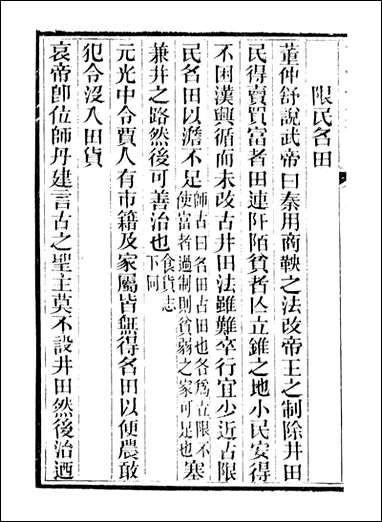 限民名田
董仲舒說武帝曰秦用商鞅之法改帝王之制除井田
民得賣買富者田連阡陌貧者亾立錐之地小民安得
不困漢興循而未改古井田法雖難卒行宜少近古限
民名田以澹不足師古曰名田占田也各爲立限不使富者過制則貧弱之家可足也塞
兼并之路然後可善治也食貨志下同
元光中令賈人有市籍及家屬皆無得名田以便農敢
犯令沒入田貨
哀帝卽位師丹建言古之聖主莫不設井田然後治迺